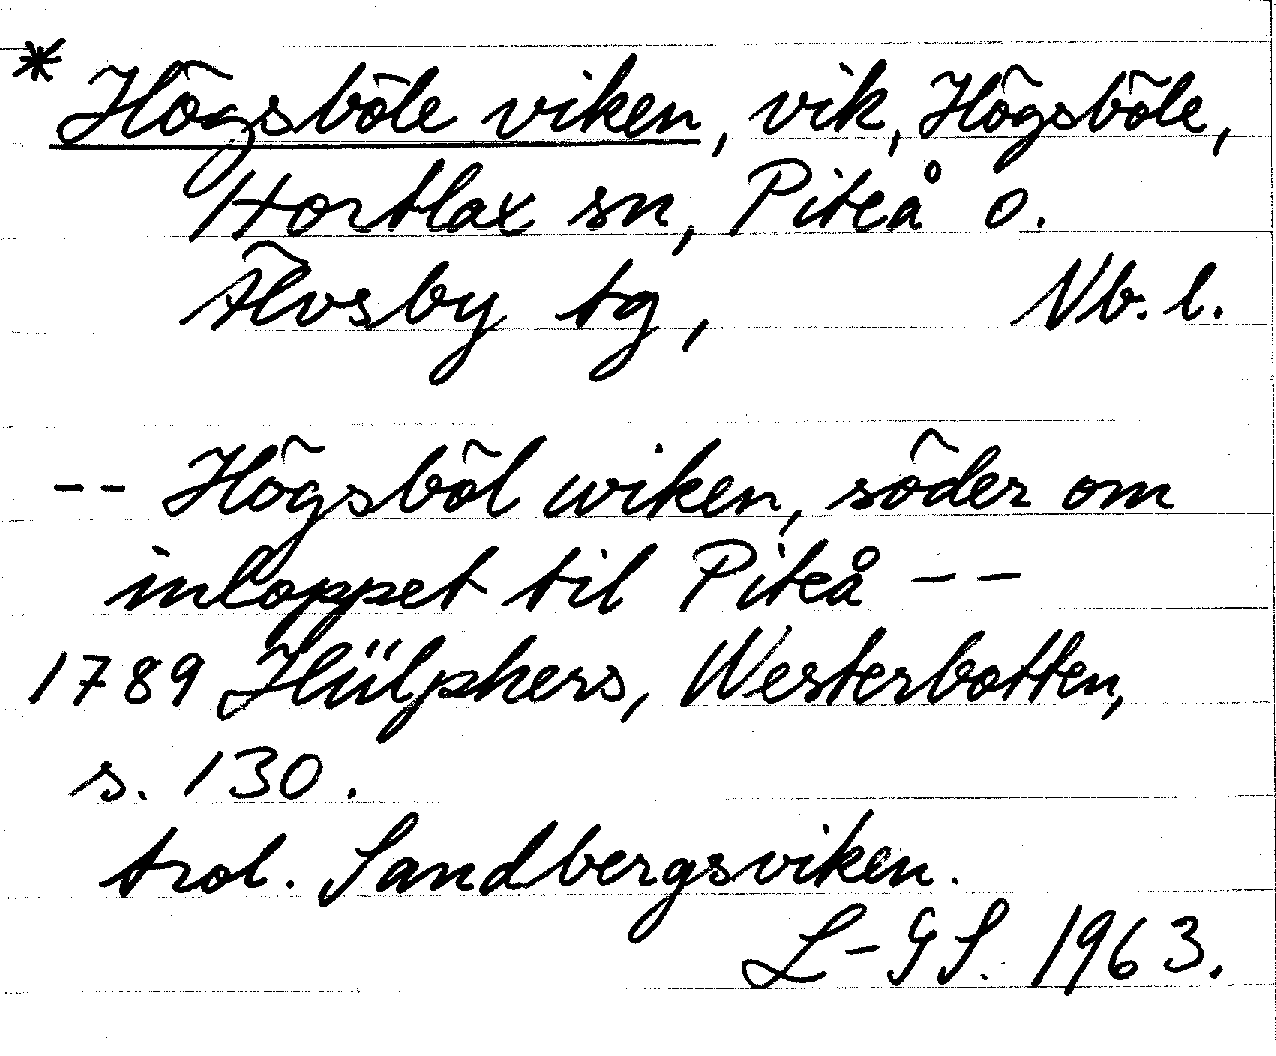 * Högsböle viken, vik, Högsböle,
Hortlax sn, Piteå o.
Älvsby tg, Nb. l.
-- Högsböl wiken, söder om
inloppet til Piteå --
1789 Hülphers, Westerbotten,
s. 130.
trol. Sandbergsviken.
L-GS. 1963.